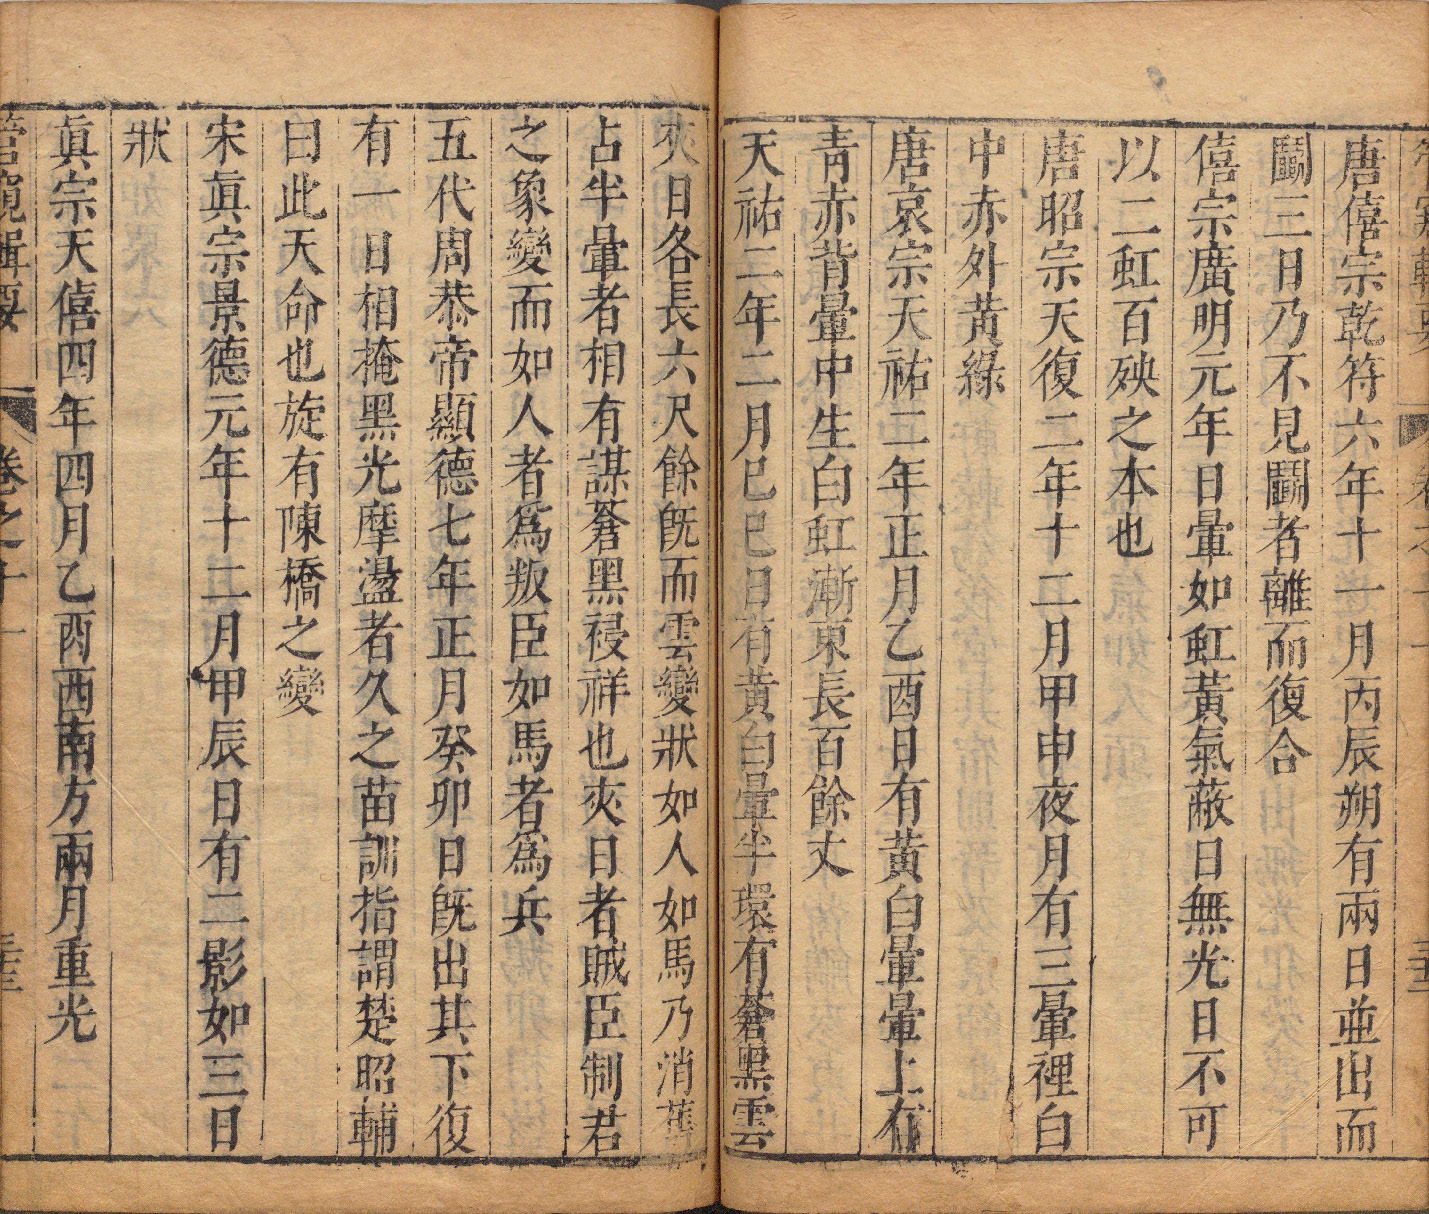 唐僖宗乾符六年十一月丙辰朔有兩日並出而
鬬三日乃不見鬬者離而復合
僖宗廣明元年日暈如虹黃氣蔽日無光日不可
以二虹百殃之本也
唐昭宗天復二年十二月甲申夜月有三暈裡白
中赤外黃綠
唐哀宗天祐二年正月乙酉日有黃白暈暈上有
青赤背暈中生白虹漸東長百餘丈
天祐二年二月巳巳日有黃白暈半環有蒼黑雲
夾日各長六尺餘旣而雲變狀如人如馬乃消舊
占半暈者相有謀蒼黑祲祥也夾日者賊臣制君
之象變而如人者爲叛臣如馬者爲兵
五代周恭帝顯德七年正月癸卯日旣出其下復
有一日相掩黑光摩盪者久之苗訓指謂楚昭輔
曰此天命也旋有陳橋之變
宋眞宗景德元年十二月甲辰日有二影如三日
狀
眞宗天僖四年四月乙酉西南方兩月重光
管窺輯要 卷之十一